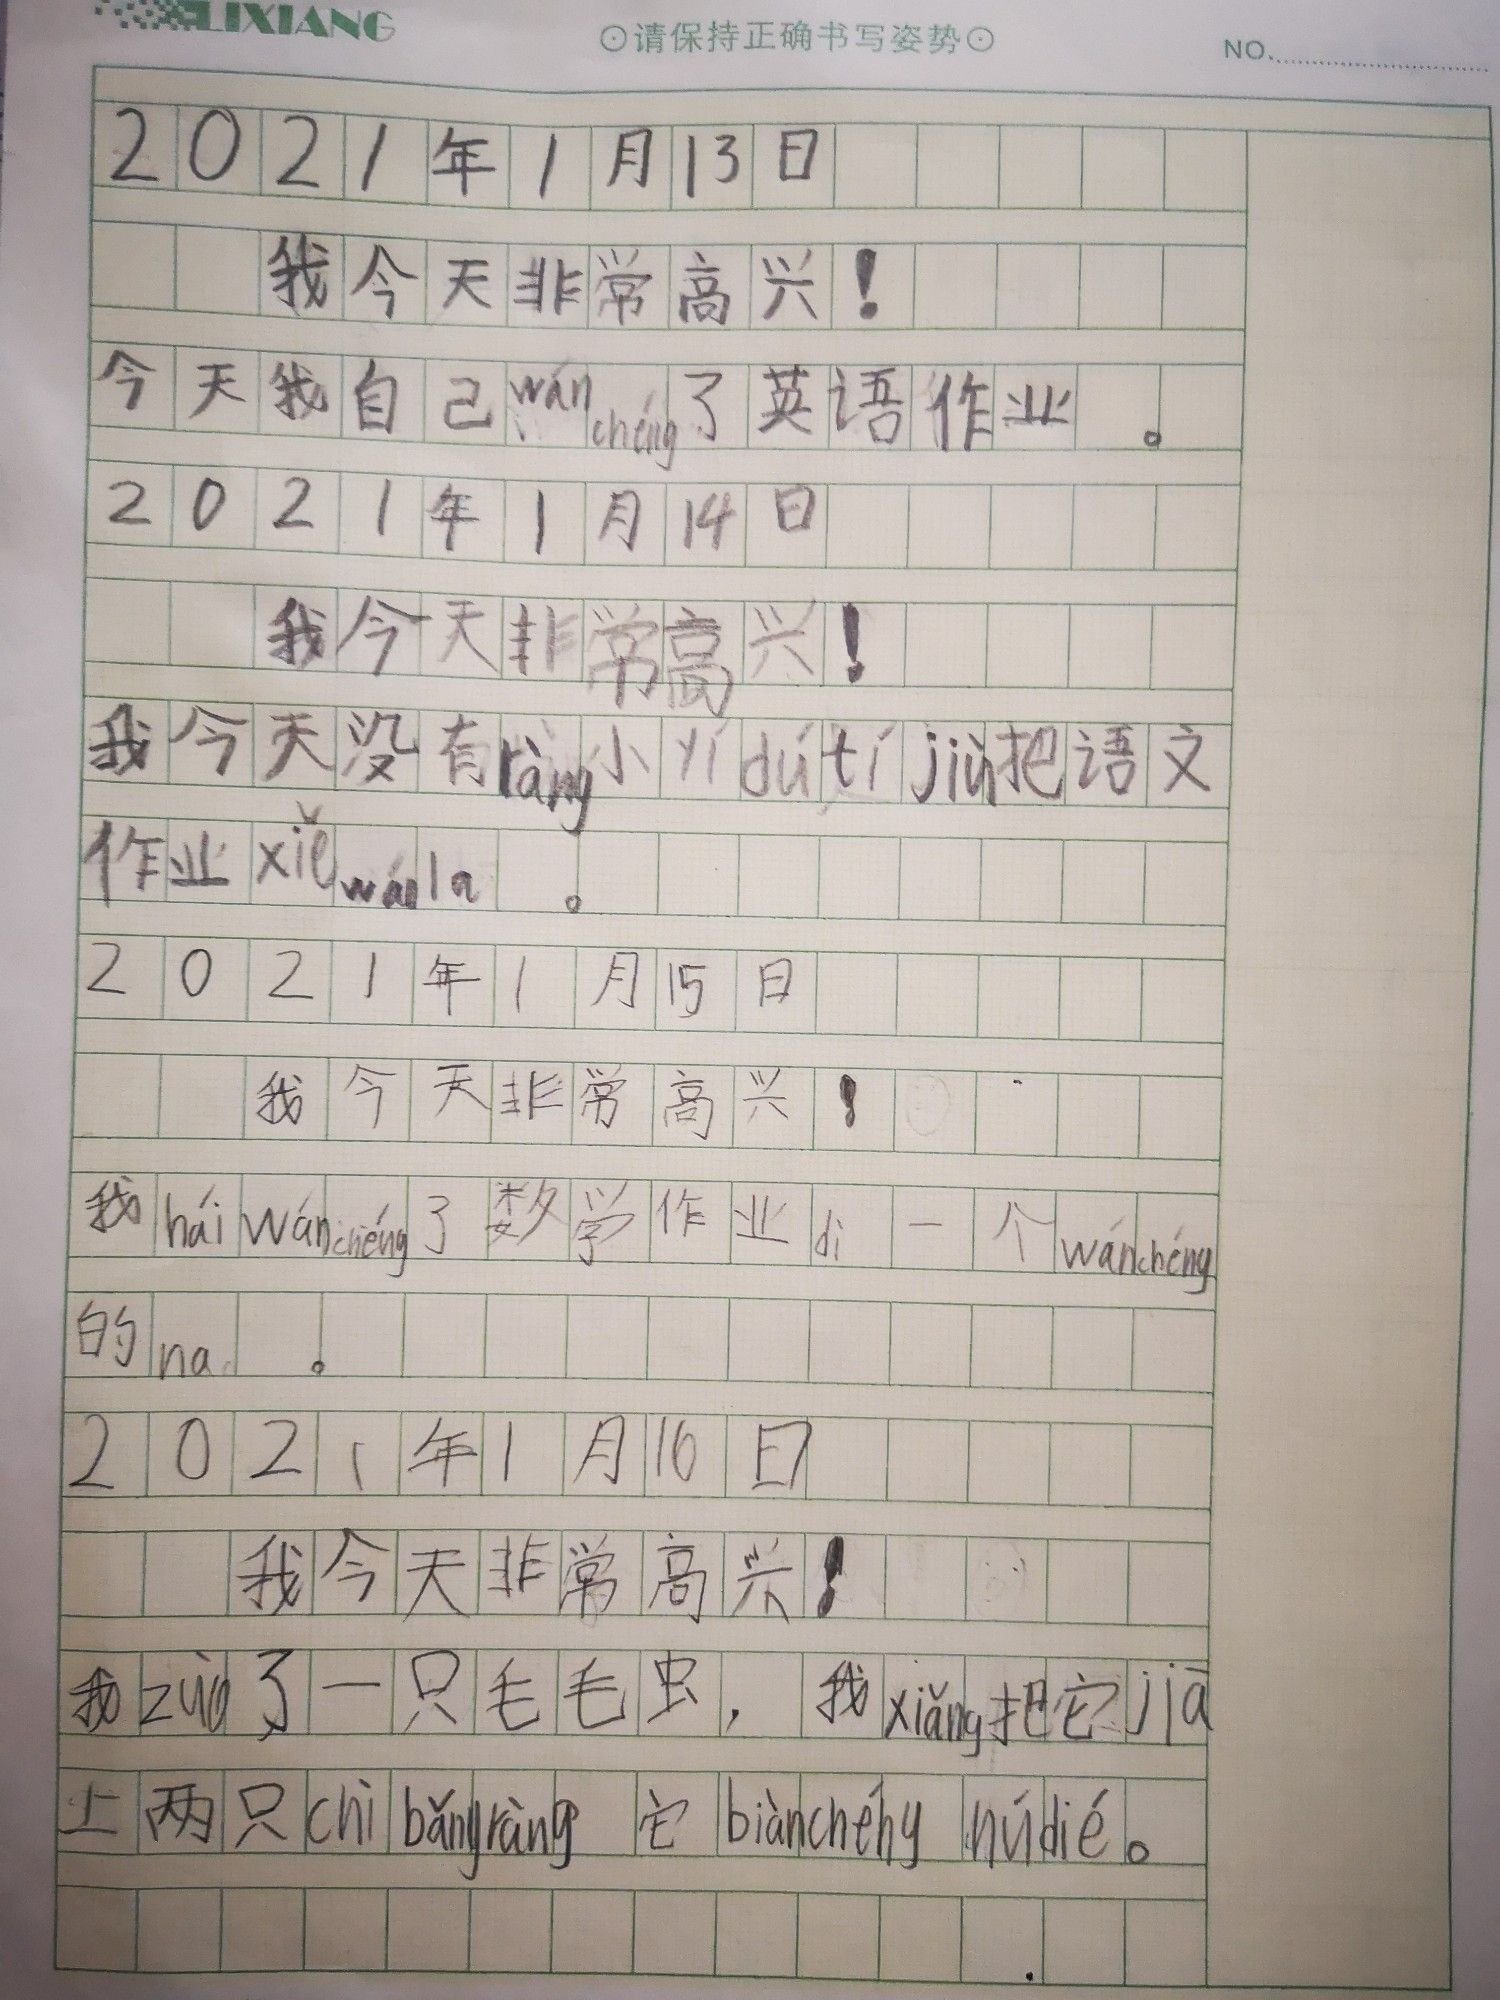 LIXIANG
⊙请保持正确书写姿势⊙
NO.
2021年1月13日
我今天非常高兴!
今天我自己wánchéng了英语作业。
2021年1月14日
我今天非常高兴!
我今天没有ràng小yídútíjiù把语文
作业xiěwánla。
2021年1月15日
我今天非常高兴!
我háiwánchéng了数学作业di一个wánchéng
的na。
2021年1月16日
我今天非常高兴!
我zuò了一只毛毛虫,我xiǎng把它jiā
上两只chìbǎngràng它biànchéng húdié。